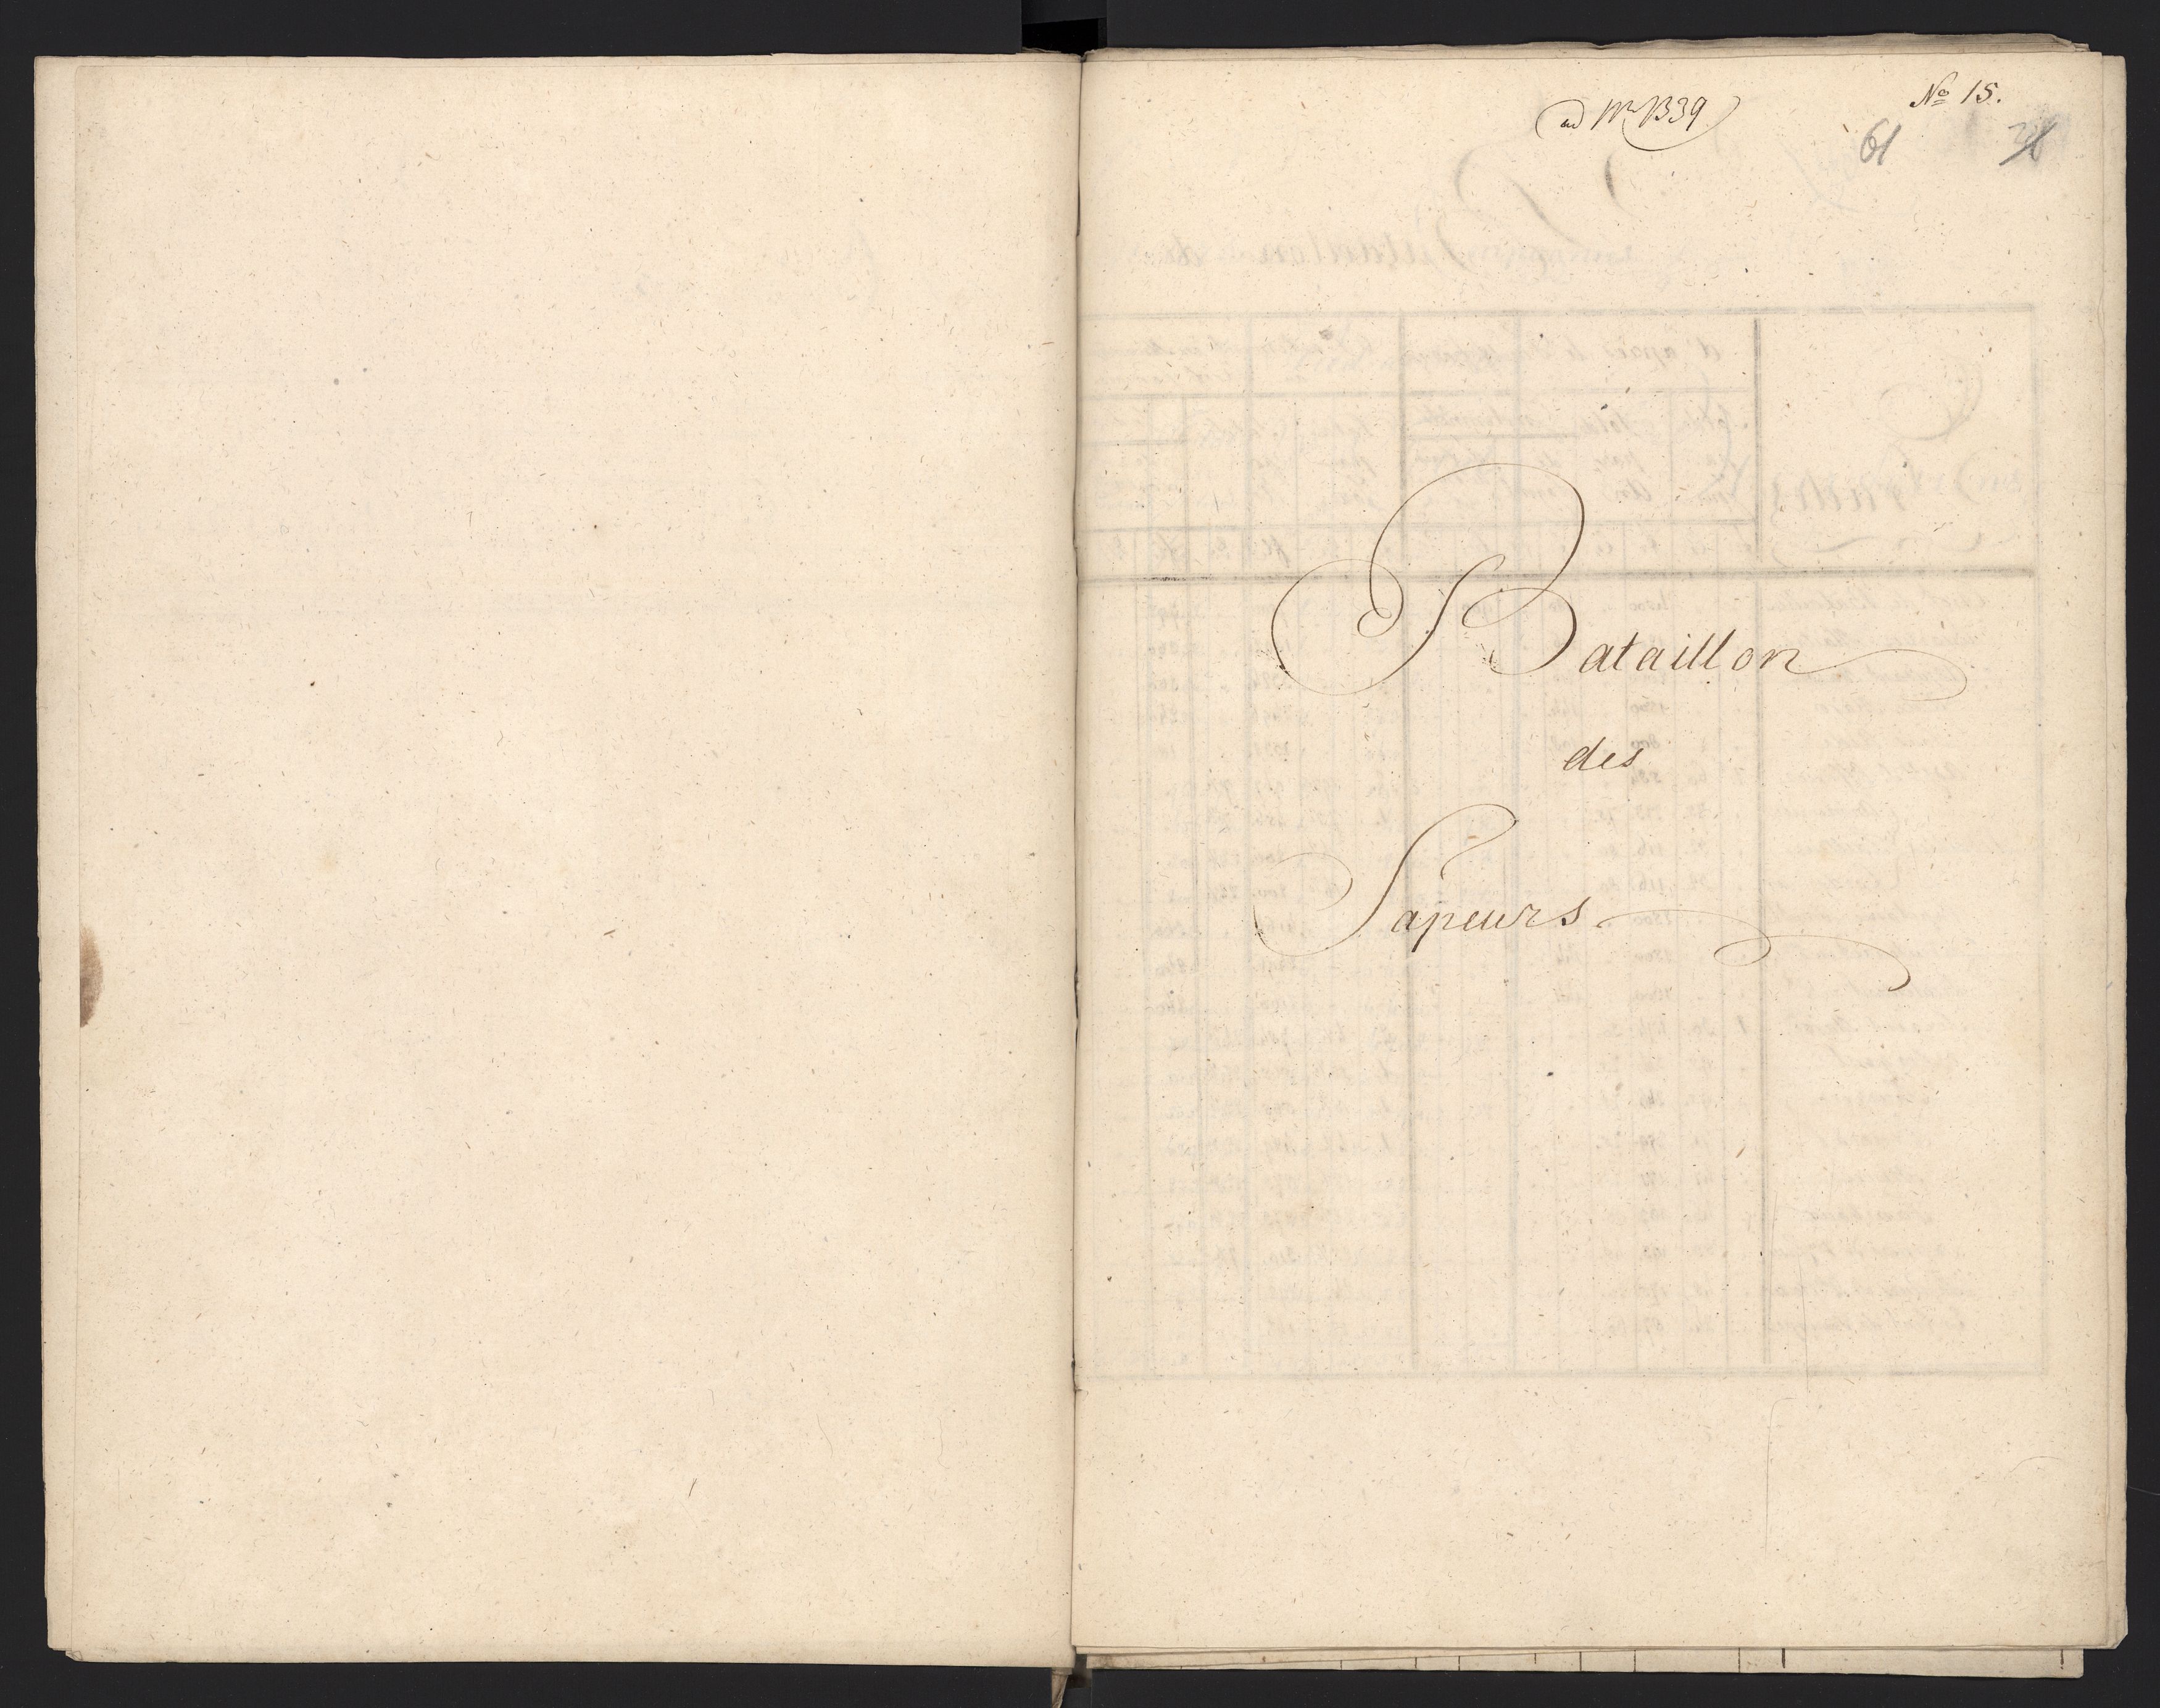 ad Nr 1339
No 15.
61 36
Bataillon
des
Sapeurs.